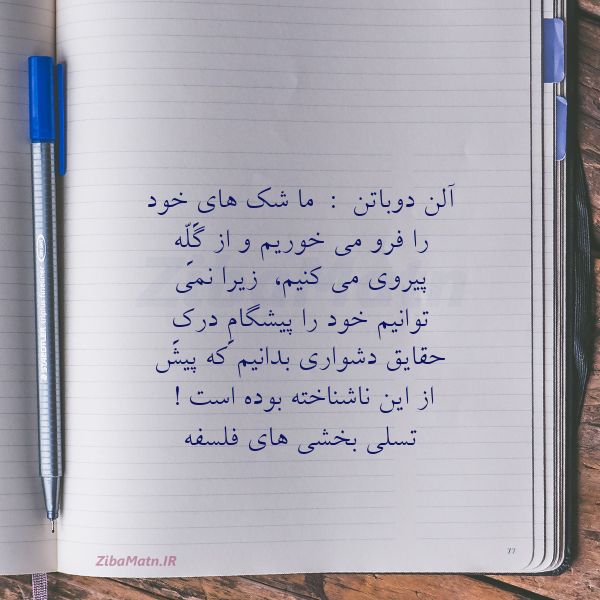 آلن دوباتن : ما شک های خود
را فرو می خوریم و از گلّه
پیروی می کنیم، زیرا نمی
توانیم خود را پیشگامِ درک
حقایق دشواری بدانیم که پیش
از این ناشناخته بوده است !
تسلی بخشی های فلسفه
77
ZibaMatn.IR